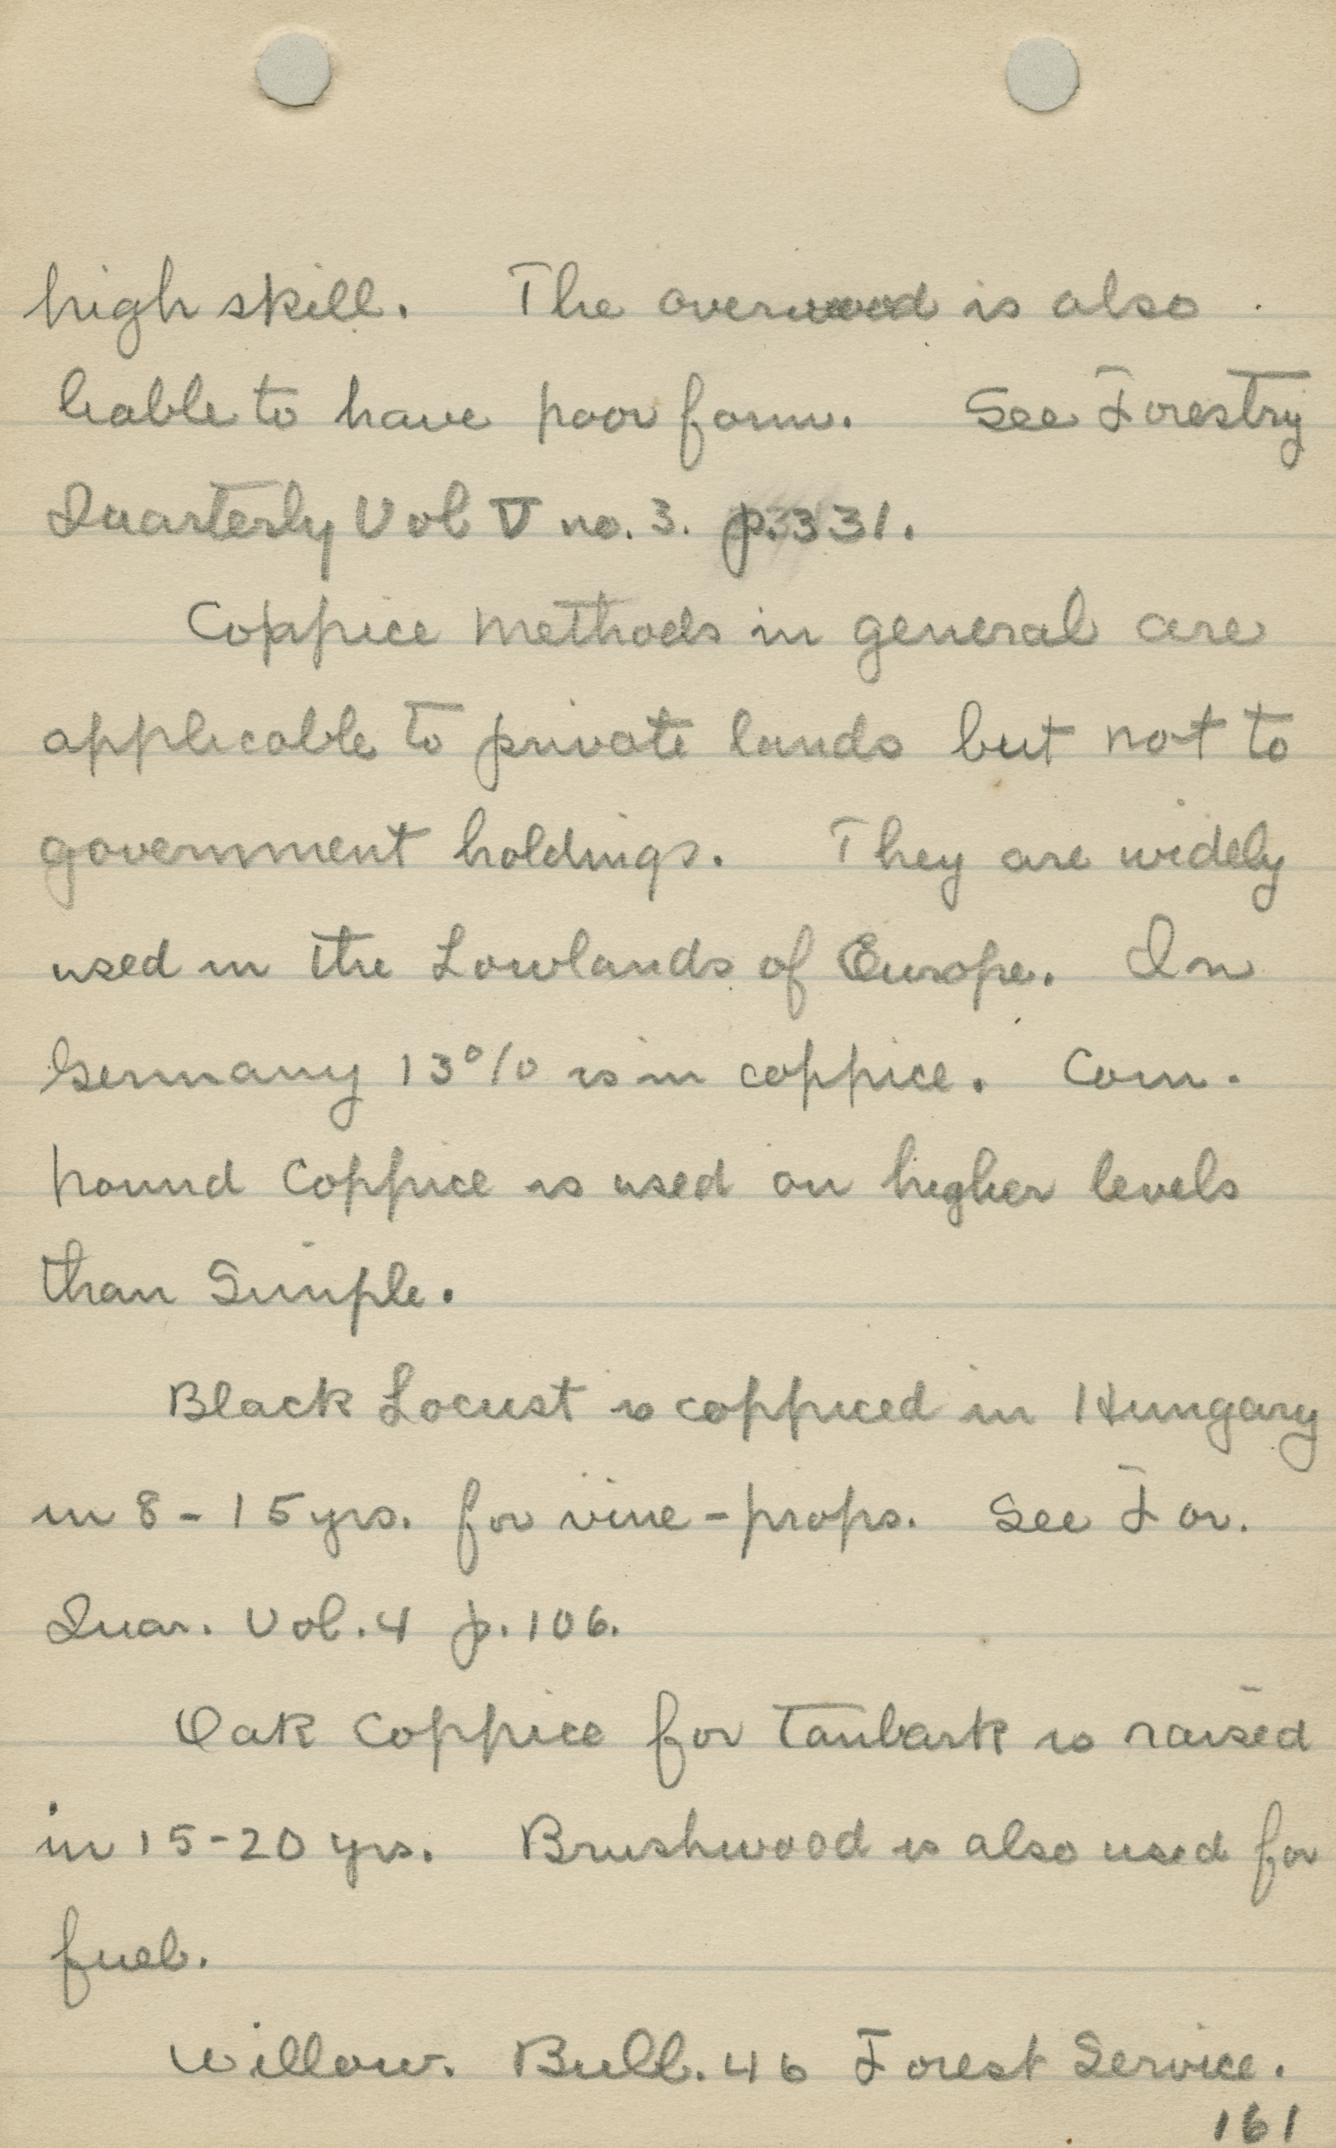 high skill. The overwood is also
liable to have poor form. See Forestry
Quarterly Vol V no. 3. p. 331.
Coppice methods in general are
applicable to private lands but not to
government holdings. They are widely
used in the Lowlands of Europe. In
Germany 13% is in coppice. Com-
pound Coppice is used on higher levels
than Simple.
Black Locust is coppiced in Hungary
in 8-15 yrs. for vine-props. See For.
Quar. Vol. 4 p. 106.
Oak Coppice for Tanbark is raised
in 15-20 yrs. Brushwood is also used for
fuel.
Willow. Bull. 46 Forest Service.
161